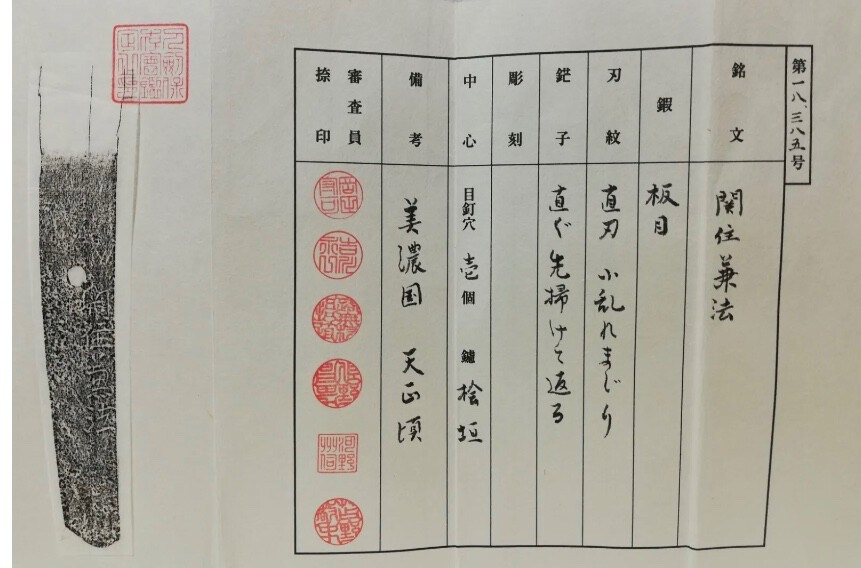 第一八、三八五号
銘文
関住兼法
鍜
板目
刃紋
直刃 小乱れまじり
鋩子
直ぐ先掃けて返る
彫刻
中心
目釘穴 壱個 鑢 桧垣
備考
美濃国 天正頃
審査員
捺印